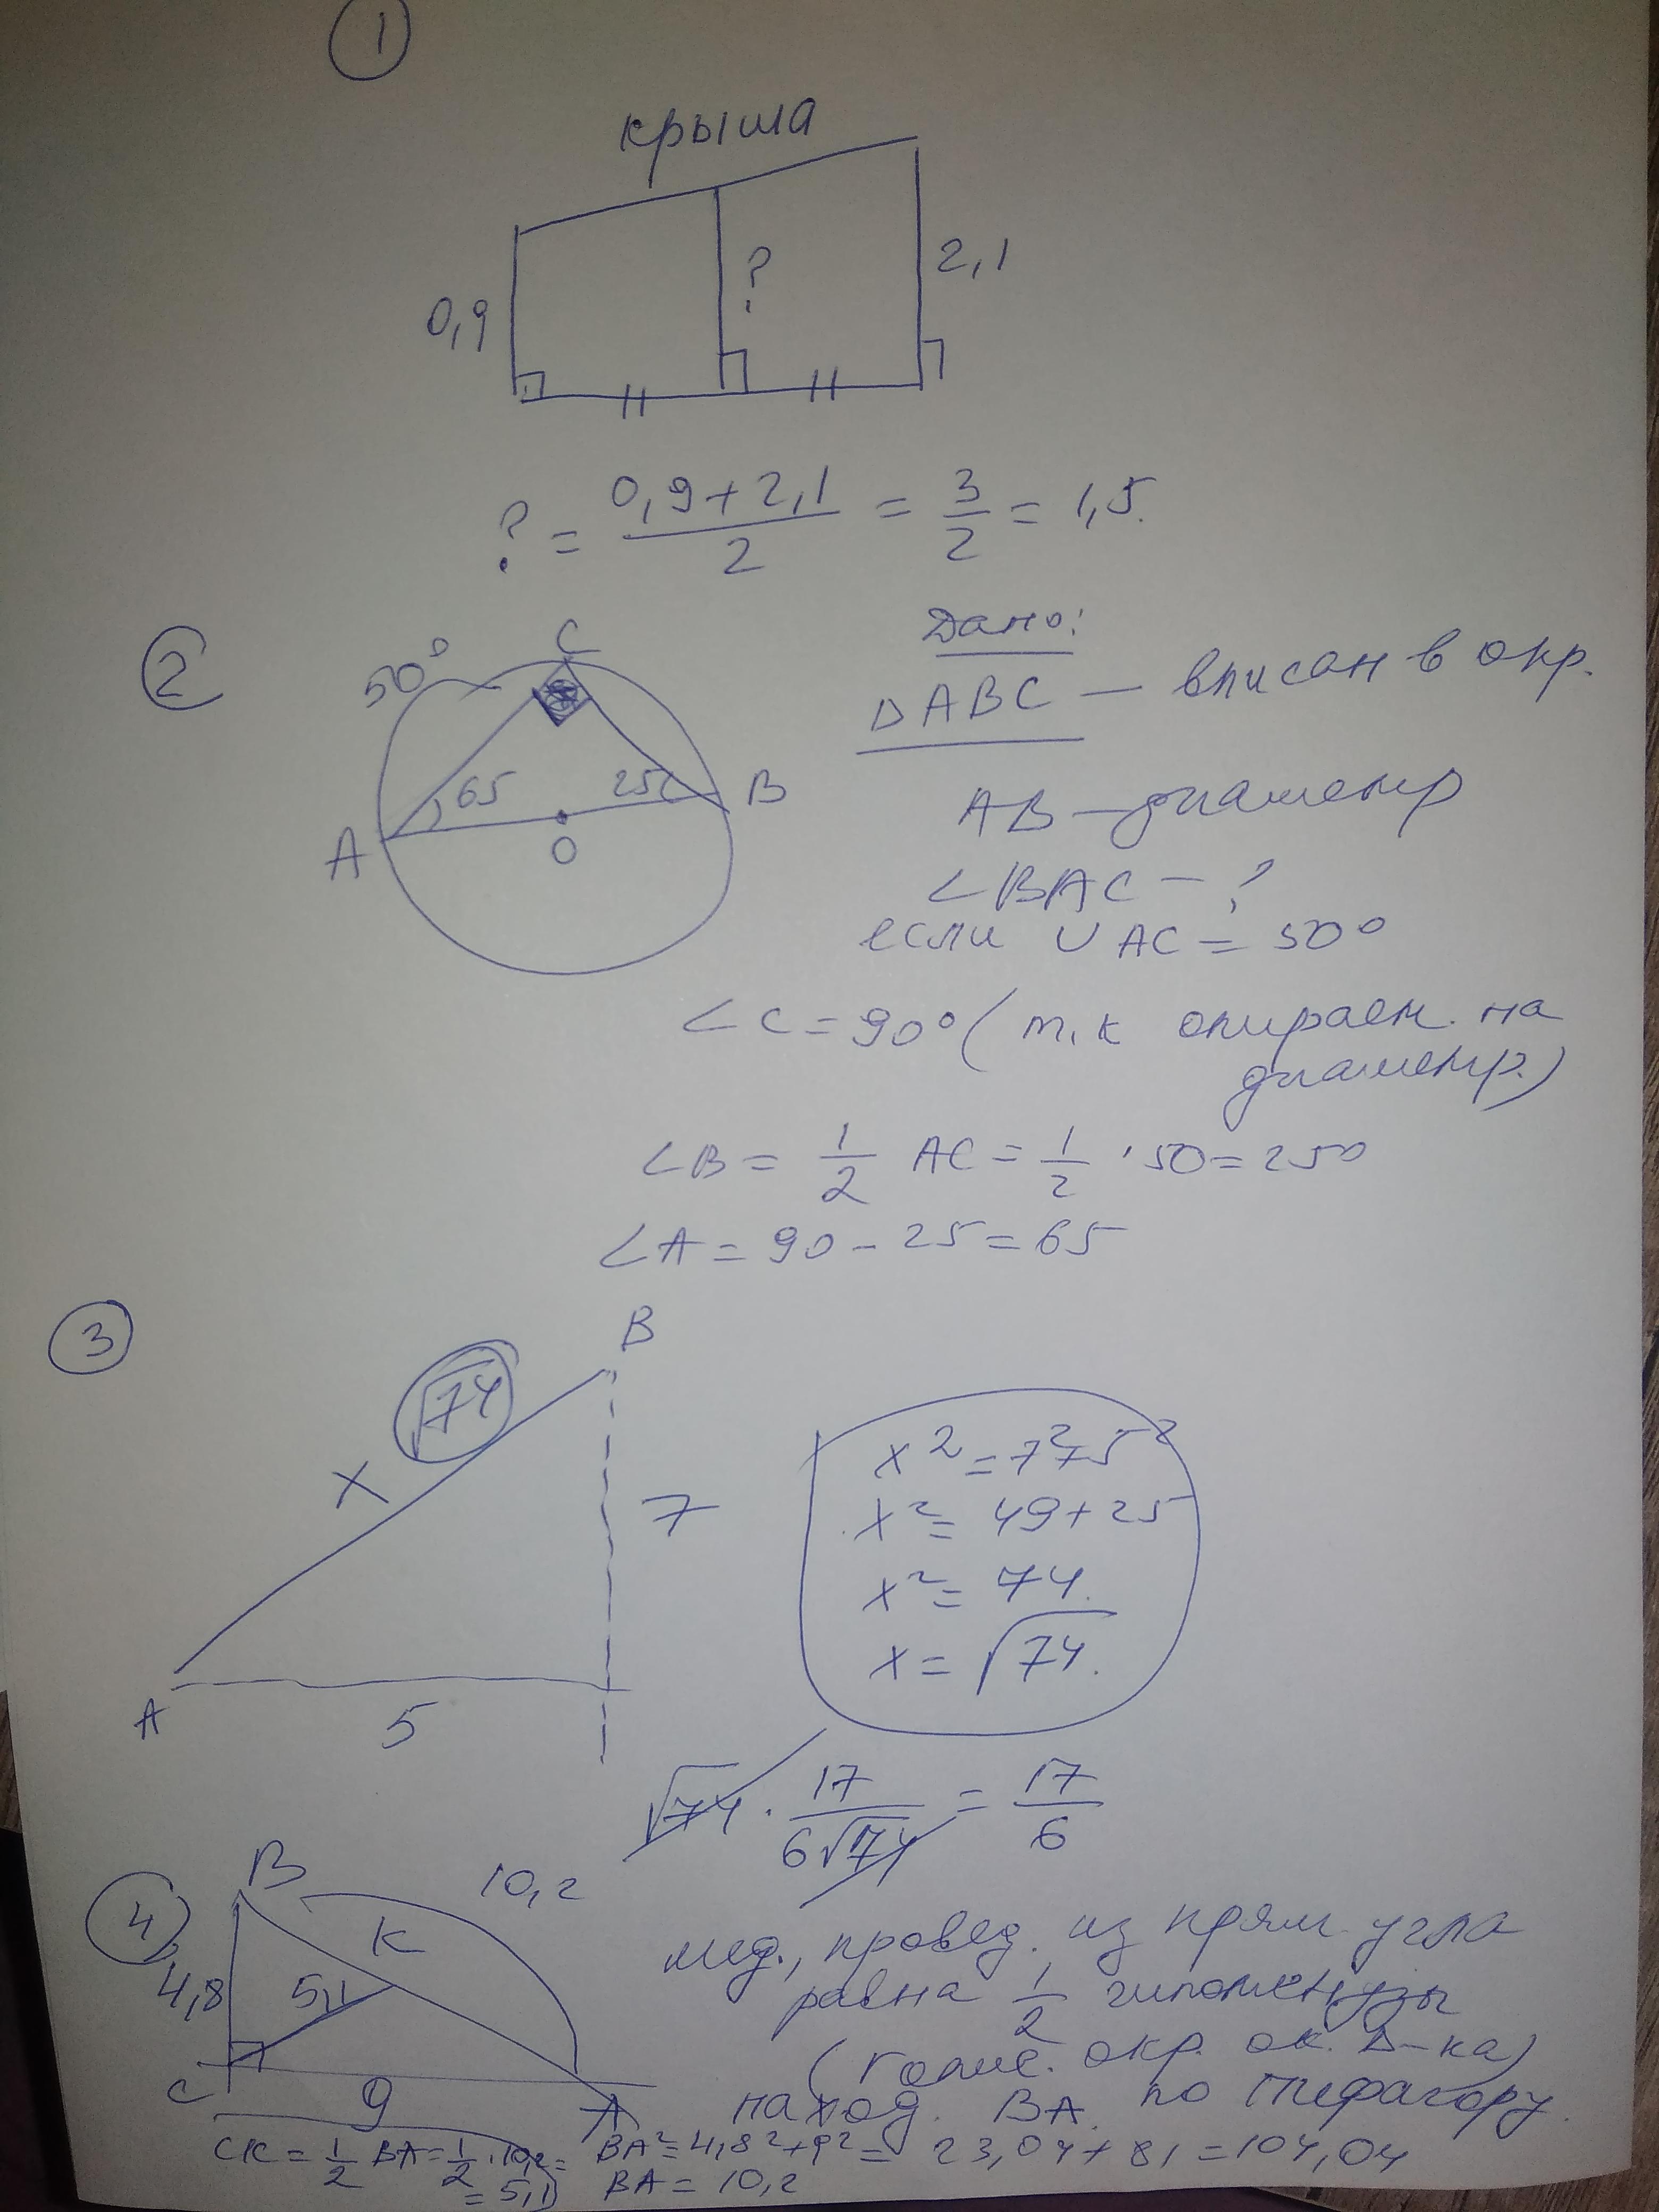 1
крыша
0,9
?
2,1
? = (0,9+2,1)/2 = 3/2 = 1,5.
2
50°
C
65
25
A
O
B
Дано:
ΔABC — вписан в окр.
AB — диаметр
∠BAC — ?
если ∪AC = 50°
∠C = 90° (т.к опирает. на
диаметр.)
∠B = 1/2 AC = 1/2 · 50 = 25°
∠A = 90 - 25 = 65
3
B
√74
X
7
A
5
x² = 7²+5²
x² = 49+25
x² = 74.
x = √74.
√74 · 17/(6√74) = 17/6
4
B
10,2
K
4,8
5,1
C
9
A
мед., провед. из прям. угла
равна 1/2 гипотенузы
окр. ок. Δ-ка)
наход. BA. по пифагору.
CK = 1/2 BA = 1/2 · 10,2 =
= 5,1
BA² = 4,8²+9² = 23,04+81 = 104,04
BA = 10,2